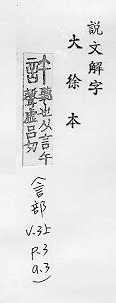 說文解字
大徐本
許 聽也从言午
聲虛呂切
(言部
V.3上
P.3
a.3)